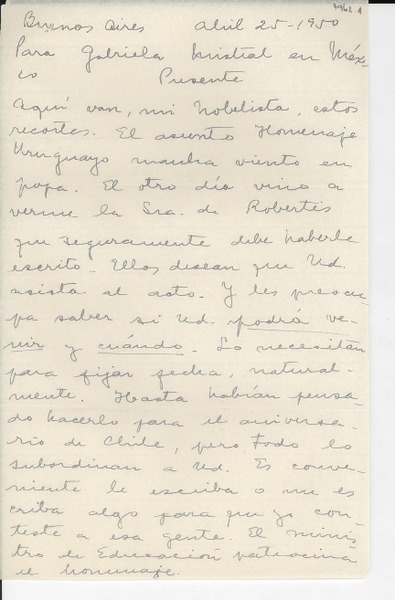 Buenos Aires Abril 25-1950
Para Gabriela Mistral en Méx-
co Presente
Aquí van, mi Nobelista, estos
recortes. El asunto Homenaje
Uruguayo marcha viento en
popa. El otro día vino a
verme la Sra. de Robertis
que seguramente debe haberle
escrito. Ellos desean que Ud.
asista al acto. Y les preocu-
pa saber si Ud. podrá ve-
nir y cuándo. Lo necesitan
para fijar fecha, natural-
mente. Hasta habían pensa-
do hacerlo para el aniversa-
rio de Chile, pero todo lo
subordinan a Ud. Es conve-
niente le escriba o me es
criba algo para que yo con-
teste a esa gente. El minis-
tro de Educación patrocina
el homenaje.